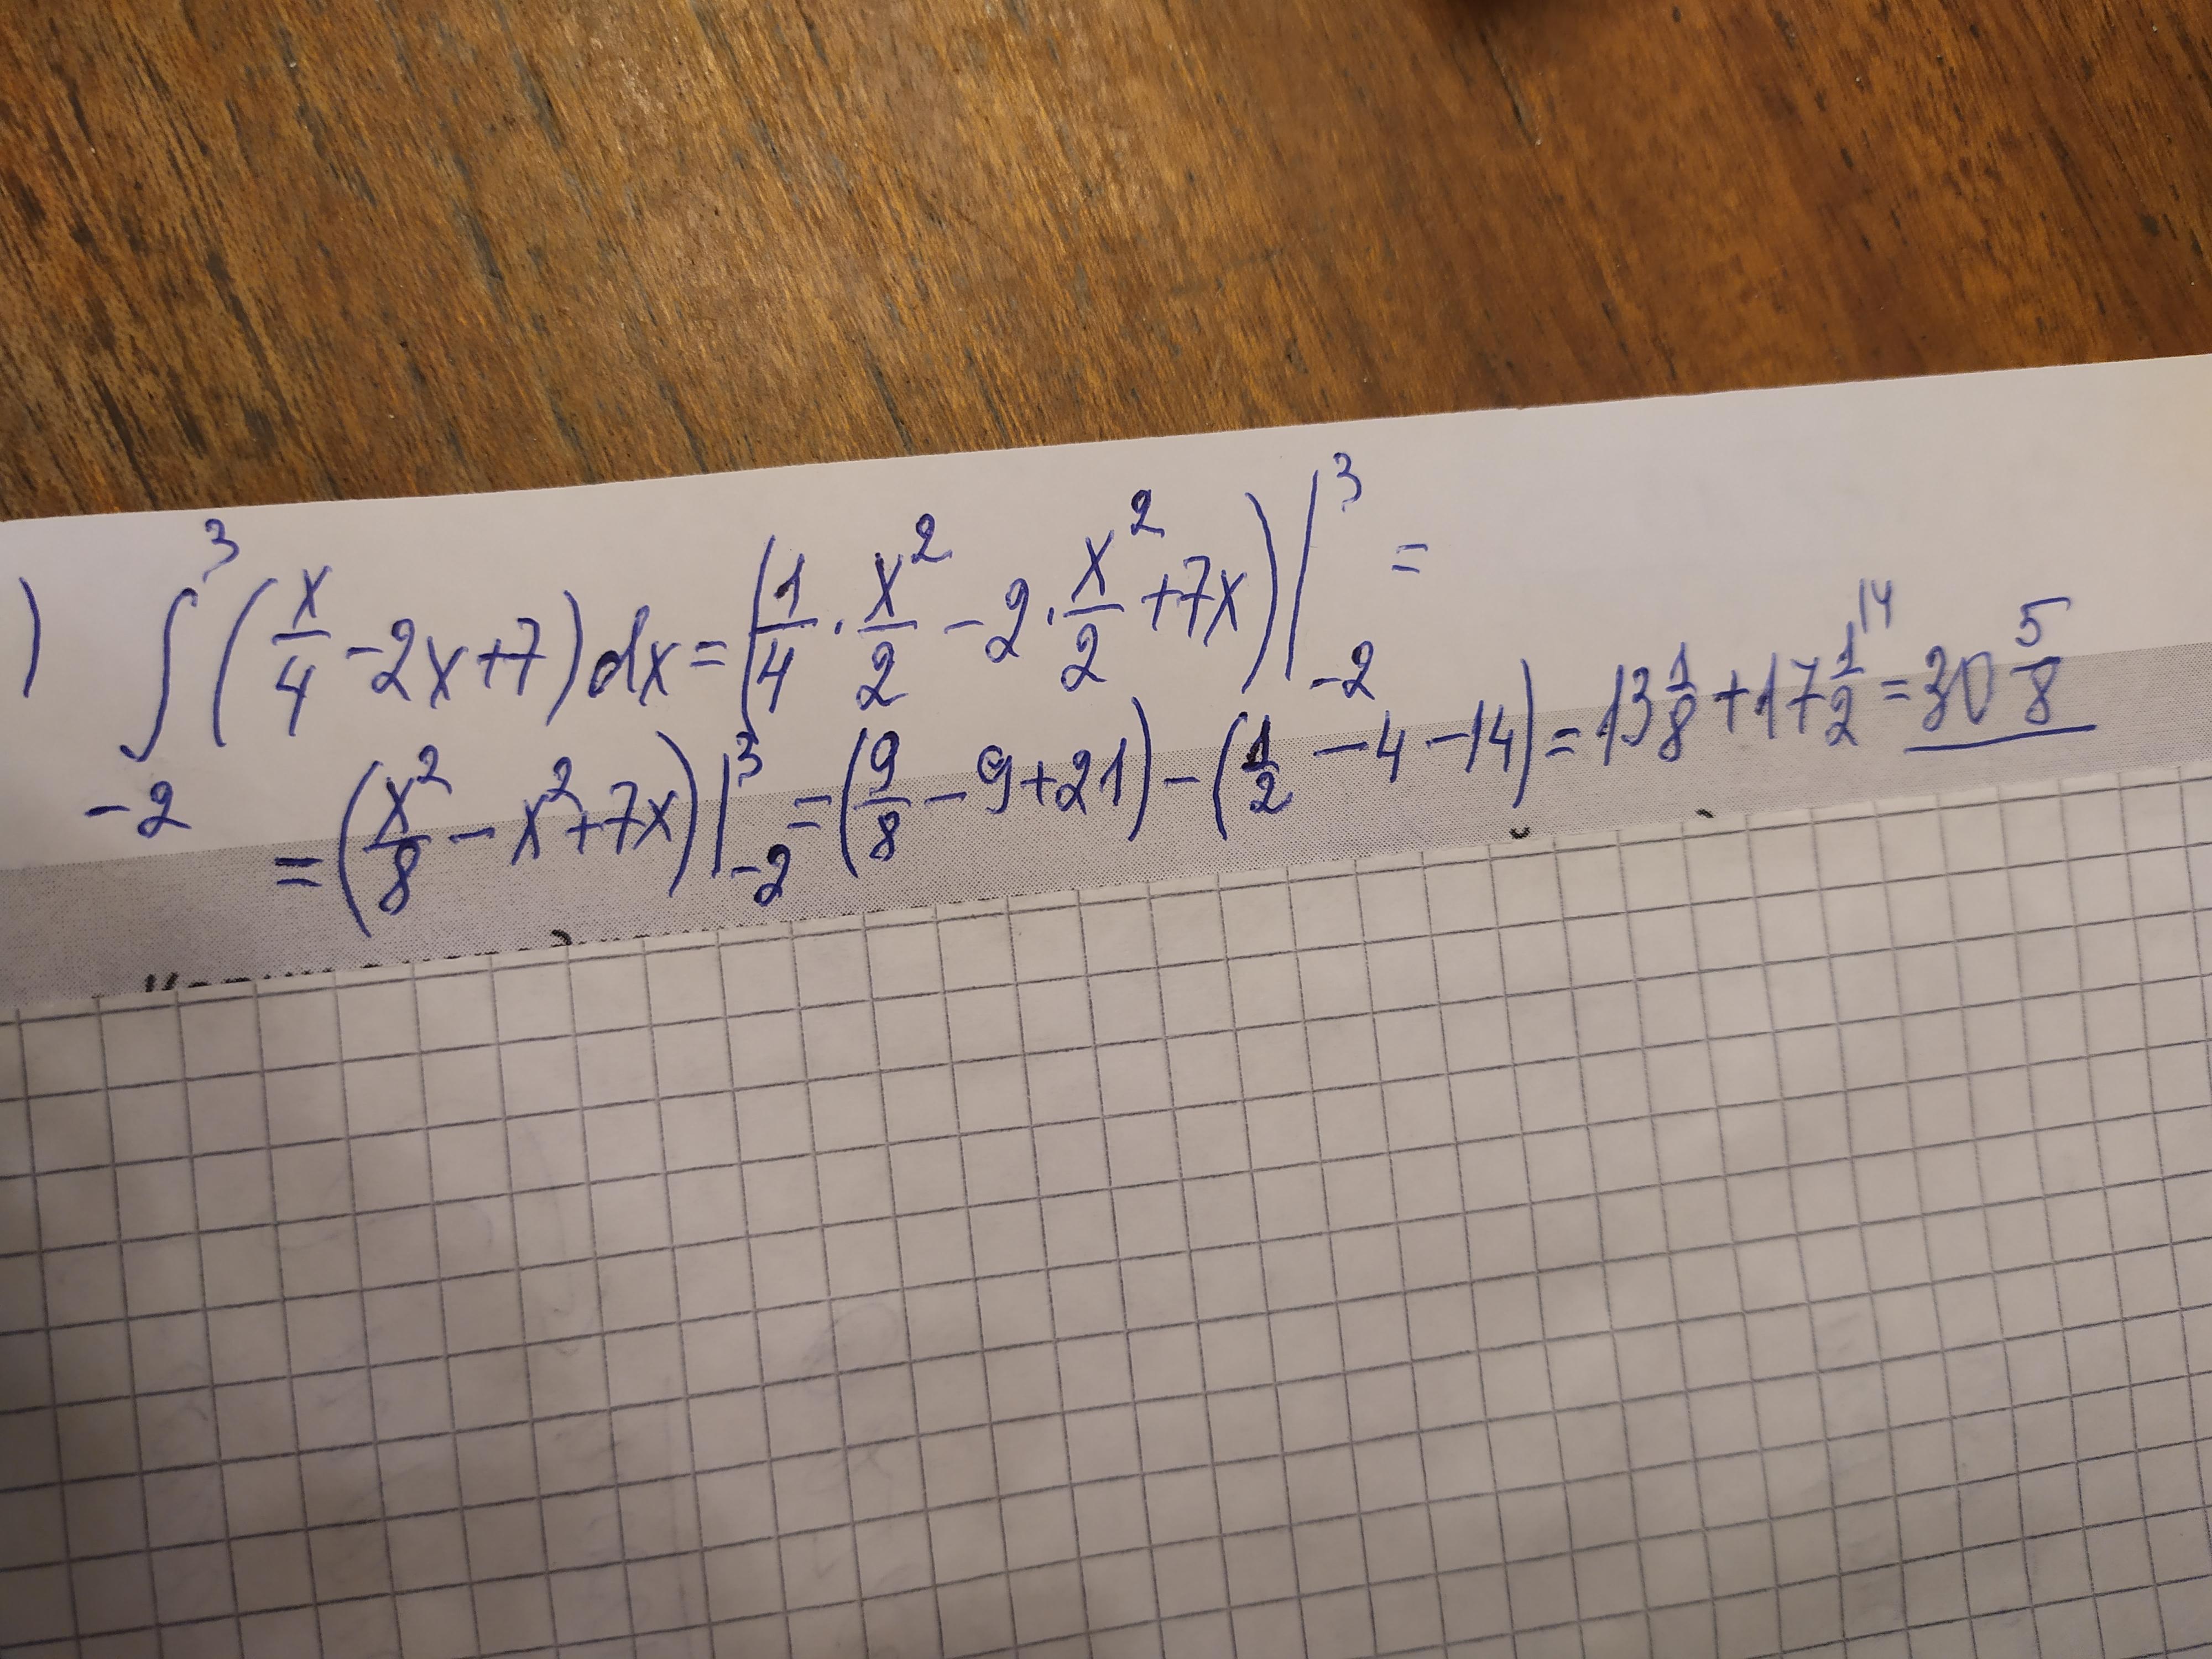 ) ∫_{-2}^{3} (x/4 - 2x + 7) dx = (1/4 · x^2/2 - 2 · x^2/2 + 7x) |_{-2}^{3} =
= (x^2/8 - x^2 + 7x) |_{-2}^{3} = (9/8 - 9 + 21) - (1/2 - 4 - 14) = 13 1/8 + 17 1/2^{14} = 30 5/8